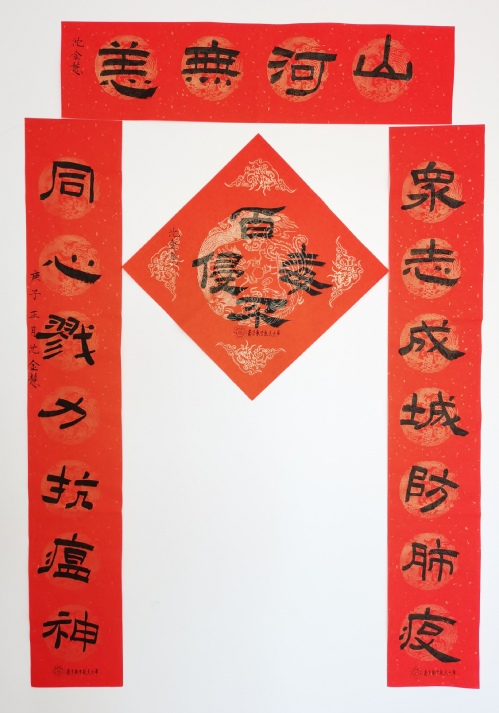 山河無恙
衆志成城防肺疫
同心戮力抗瘟神
庚子正月沈金
百毒不侵
沈金